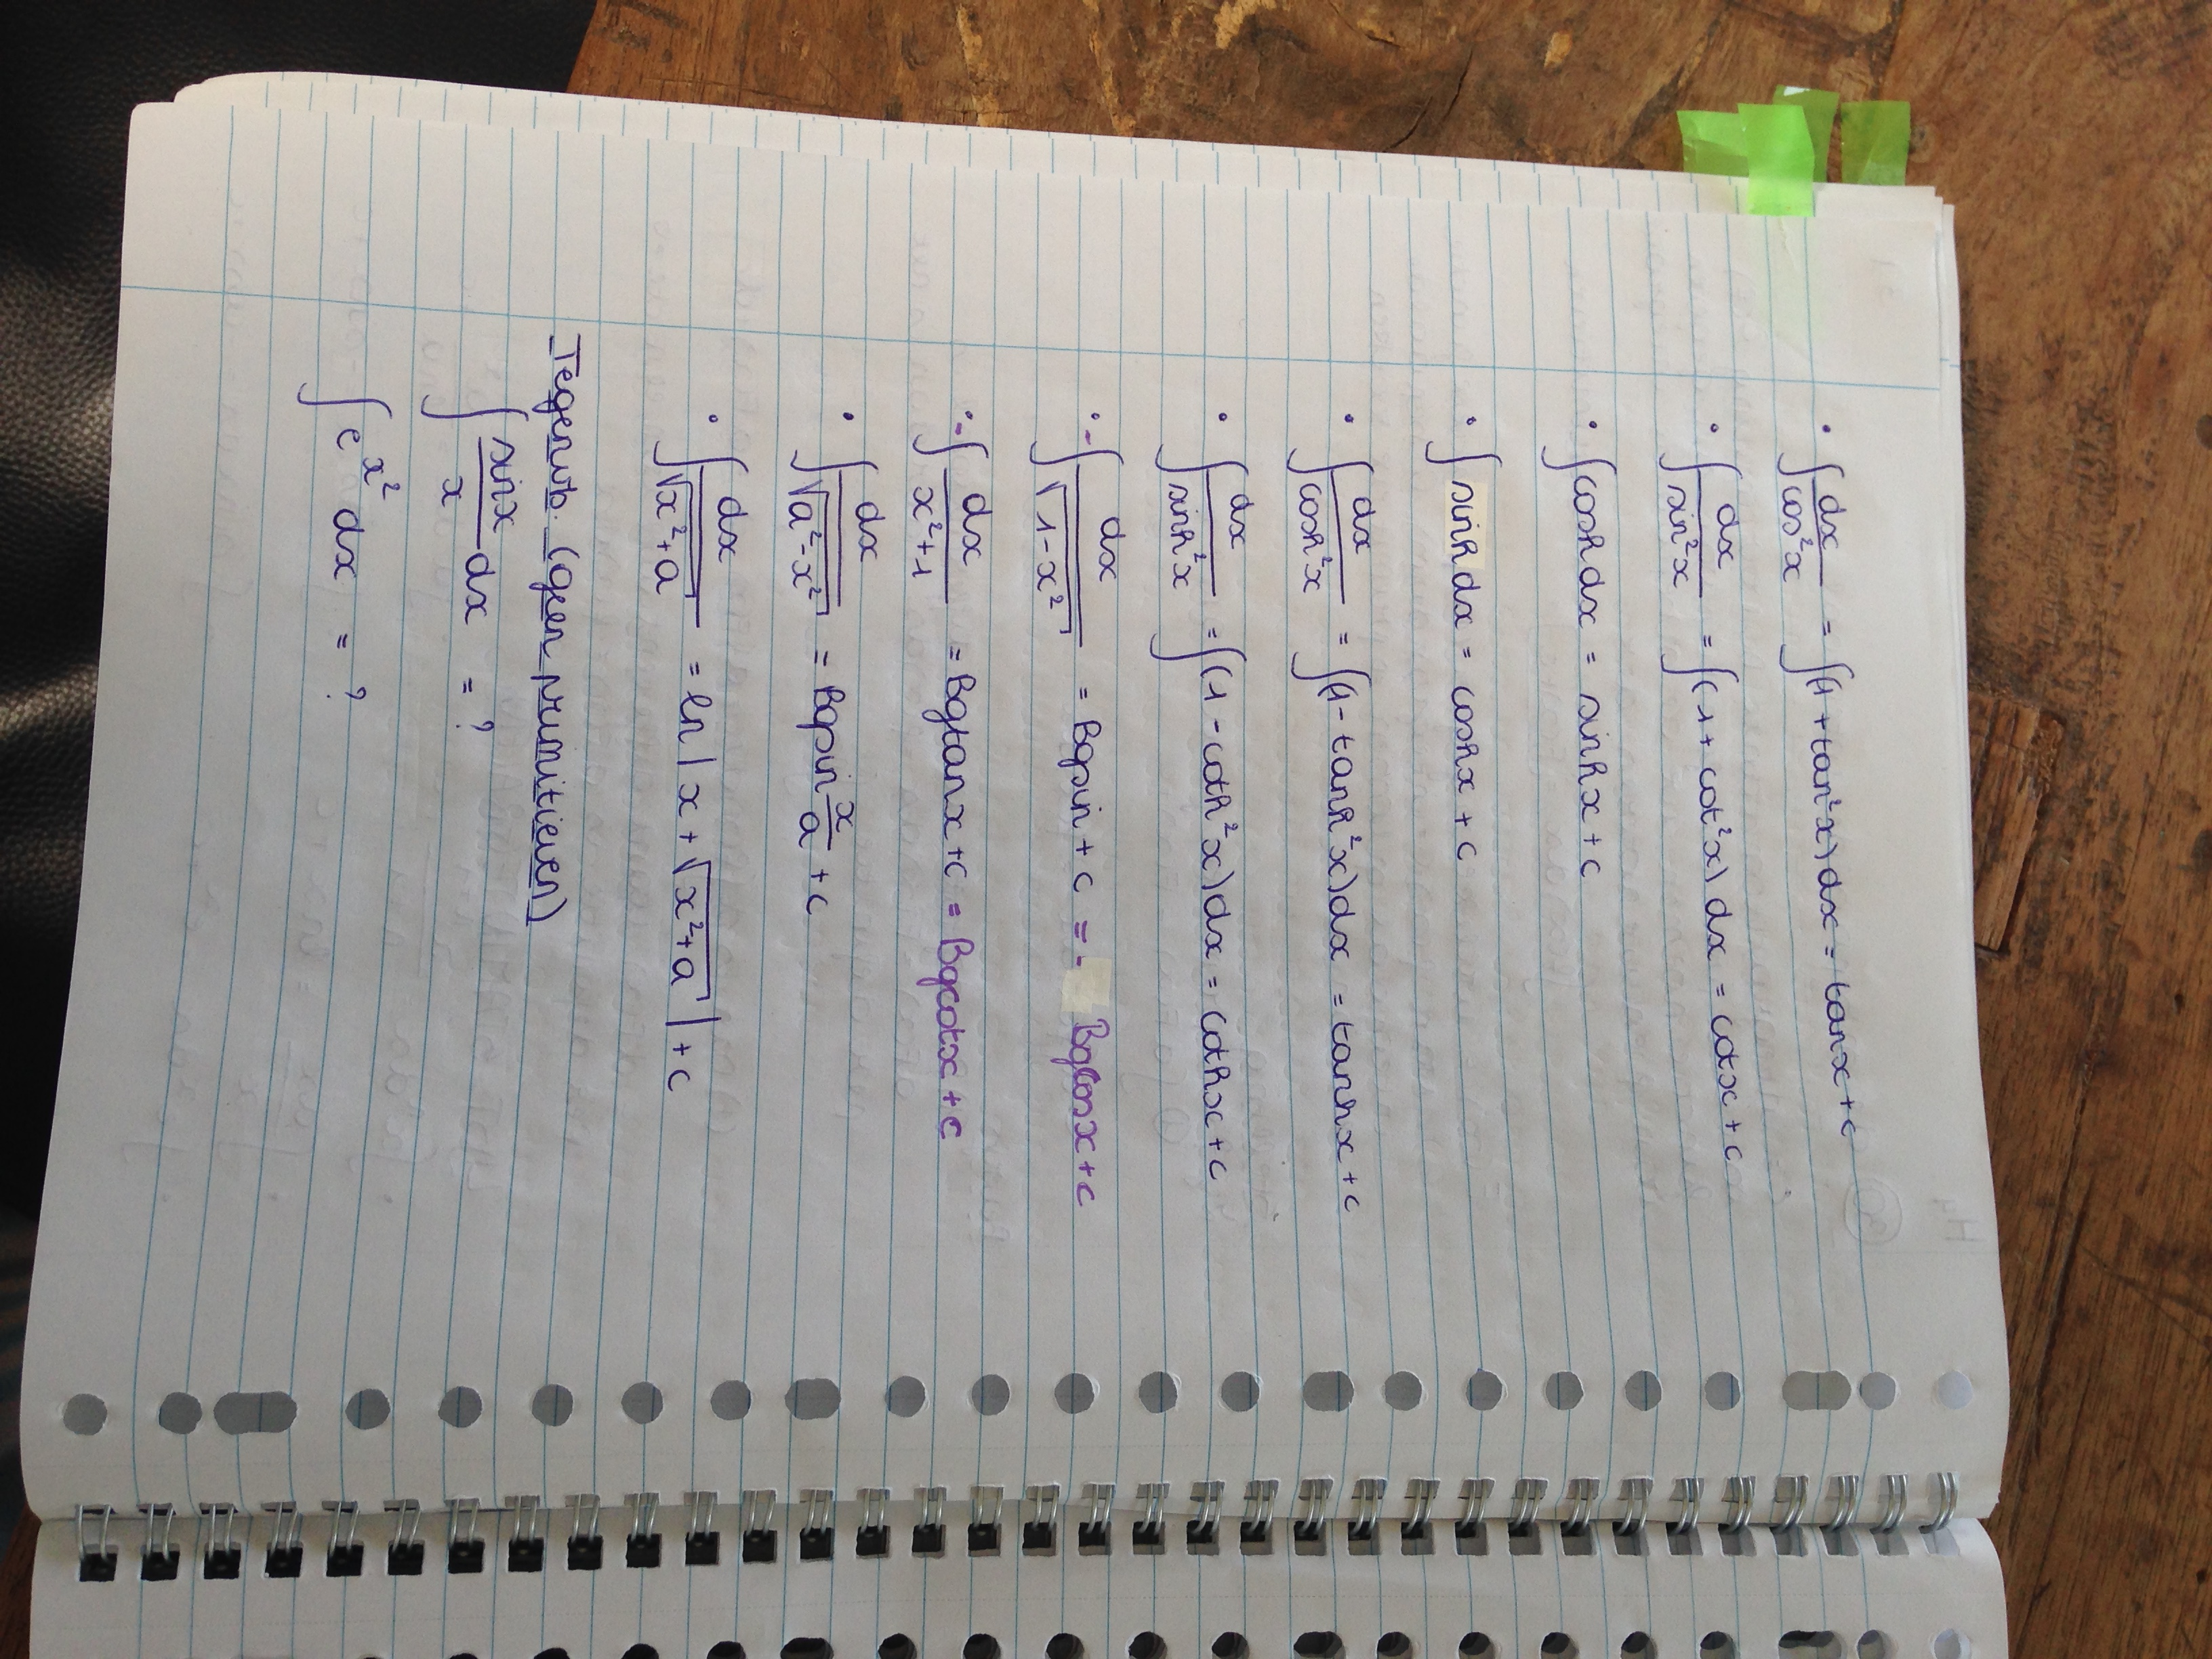 • ∫ dx/cos²x = ∫(1 + tan²x) dx = tanx + c
• ∫ dx/sin²x = ∫(1 + cot²x) dx = cotx + c
• ∫cosh dx = sinhx + c
• ∫ sinh dx = coshx + c
• ∫ dx/cosh²x = ∫(1 - tanh²x) dx = tanhx + c
• ∫ dx/sinh²x = ∫(1 - coth²x) dx = cothx + c
• -∫ dx/√(1-x²) = Bgsin + c = - Bgcosx + c
• -∫ dx/(x²+1) = Bgtanx + c = Bgcotx + c
• ∫ dx/√(a²-x²) = Bgsin x/a + c
• ∫ dx/√(x²+a) = ln | x + √(x²+a) | + c
Tegenvb. (geen primitieven)
∫ sinx/x dx = ?
∫ e^x² dx = ?